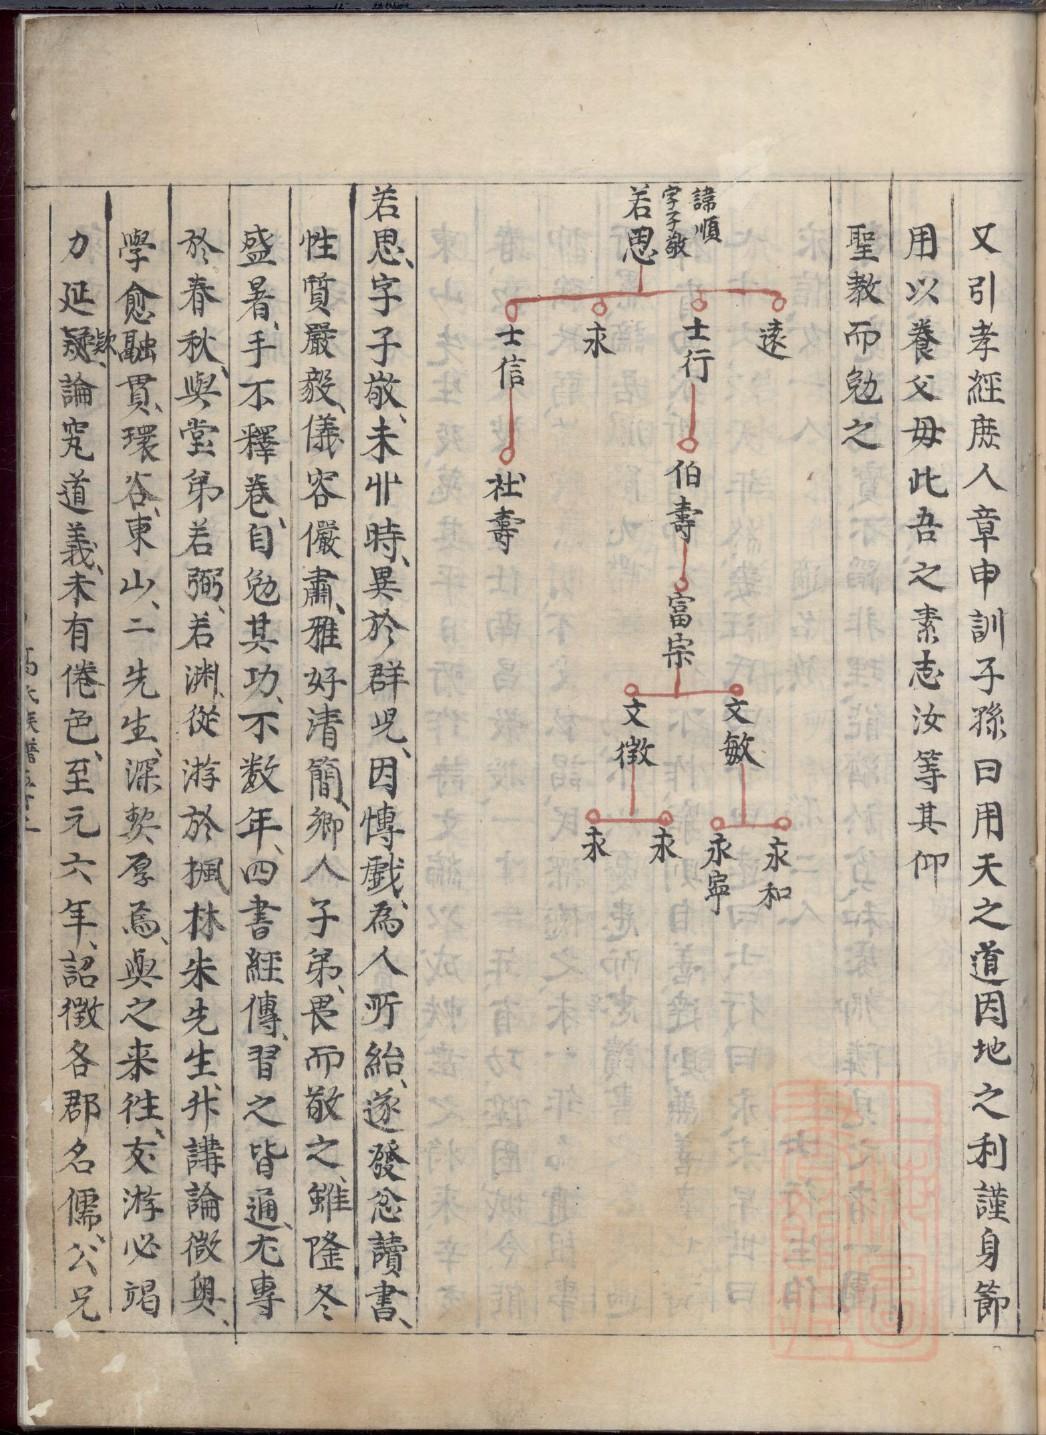 又引孝經庶人章申訓子孫曰用天之道因地之利謹身節
用以養父毋此吾之素志汝等其仰
聖教而勉之
諱順
字子敬
若思
遠
士行
永
士信
伯壽
社壽
富宗
文敏
文徵
永和
永寧
永
永
若思、字子敬、未丱時、異於群児、因慱戲、為人所紿、遂發忿讀書、
性質嚴毅、儀容儼肅、雅好清簡、鄉人子弟、畏而敬之、雖隆冬
盛暑、手不釋卷、自勉其功、不数年、四書經傳、習之皆通、尤專
於春秋、與堂弟若弼、若渊、從游於楓林朱先生、升講論微奥、
學愈融貫、環谷、東山、二先生、深契厚焉、與之来往、友游必竭
力延欵、論究道義、未有倦色、至元六年、詔徵各郡名儒、公兄